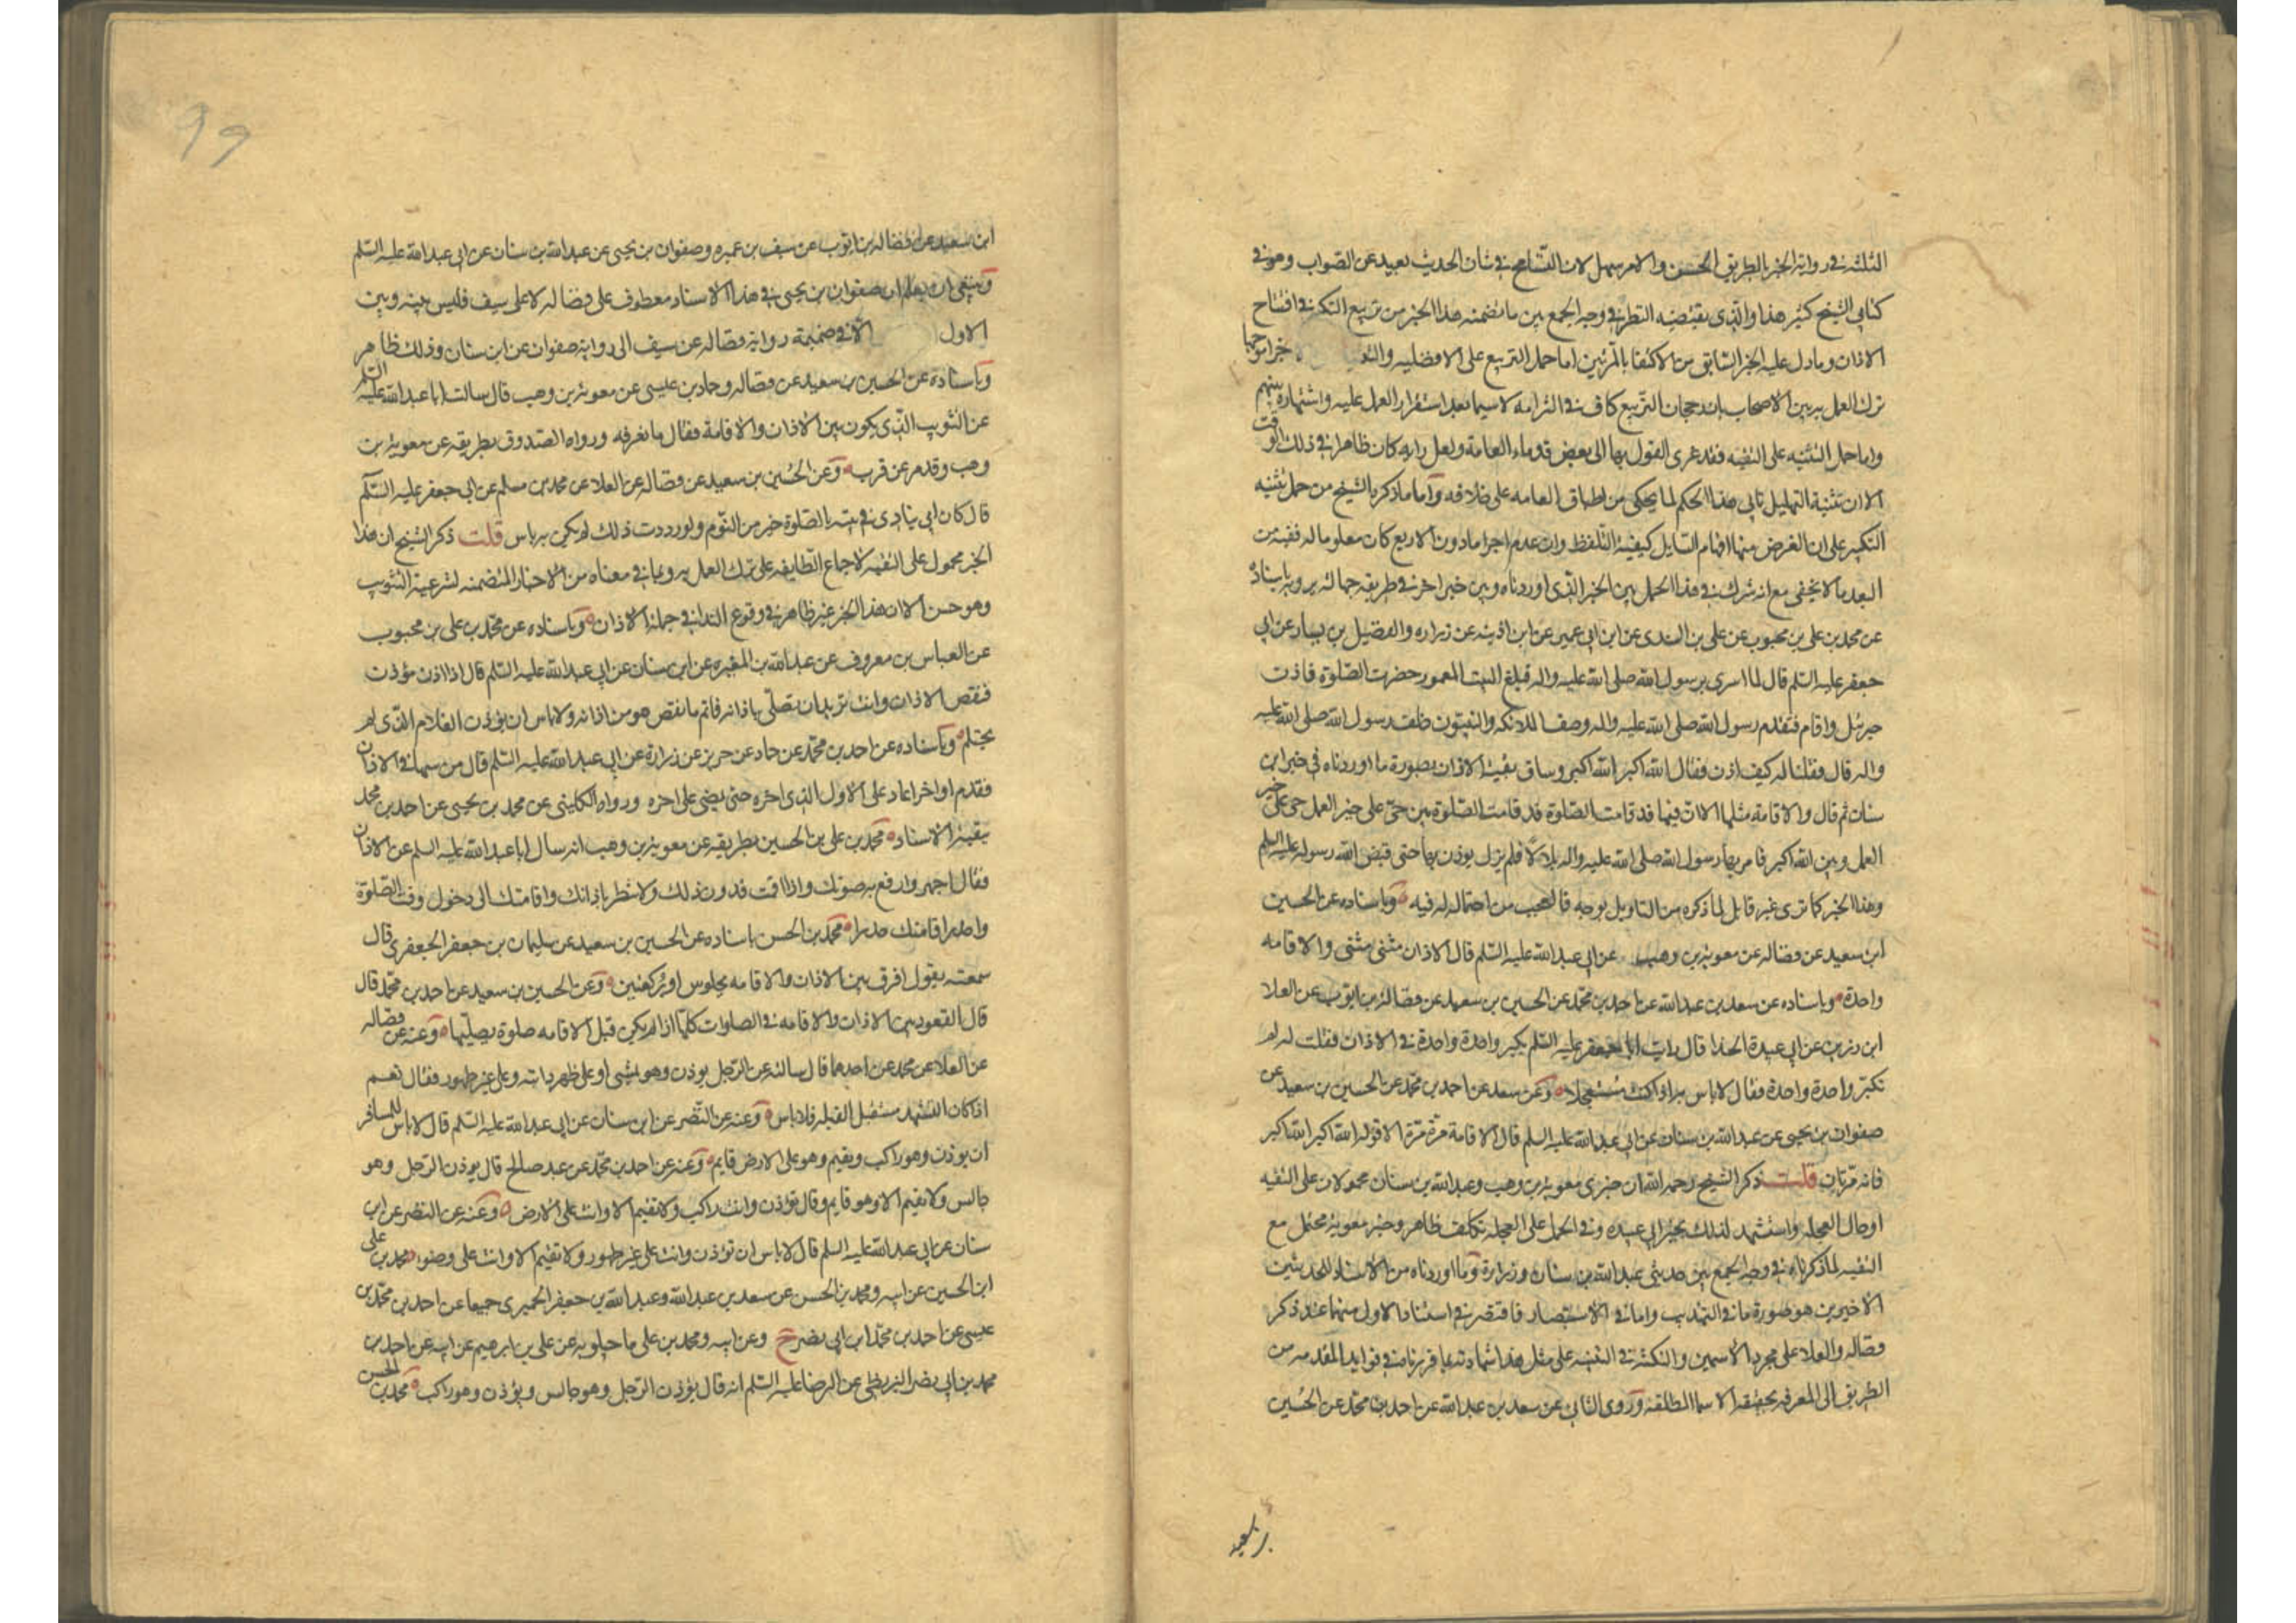 الثلثه في رواية الخبر بالطريق الحسن والامر سهل لان التسامح في شان الحديث بعيد عن الصواب وهو في
كتابي الشيخ كثير هذا والذي يقتضيه النظر في وجه الجمع بين ما تضمنه هذا الخبر من تربيع التكبر في افتتاح
الاذان وما دل عليه الخبر السابق من الاكتفا بالمرتين اما حمل التربيع على الافضليه
ترك العمل به بين الاصحاب بل رجحان التربيع كاف في التزامه لا سيما بعد استقرار العمل عليه واشتهاره بينهم
واما حمل التثنيه على التقيه فقد عزى القول بها الى بعض قدماء العامة ولعل رايه كان ظاهرا في ذلك الوقت
الا ان تثنية التهليل تابي هذا الحكم لما يحكى من اطباق العامه على خلافه واما ما ذكره الشيخ من حمل تثنيه
التكبير على ان الغرض منها افهام السايل كيفية التلفظ وان عدم اجزا ما دون الاربع كان معلوما له ففيه من
البعد ما لا يخفى مع انه شرك في هذا الحمل بين الخبر الذي اوردناه وبين خبر اخر في طريقه جهالة يرويه باسناده
عن محمد بن علي بن محبوب عن علي بن السندي عن ابن ابي عمير عن ابن اذينه عن زراره والفضيل بن يسار عن ابي
جعفر عليه السلم قال لما اسري برسول الله صلى الله عليه واله فبلغ البيت المعمور حضرت الصلوة فاذن
جبرئل واقام فتقدم رسول الله صلى الله عليه واله وصف الملائكه والنبيون خلف رسول الله صلى الله عليه
واله قال فقلنا له كيف اذن فقال الله اكبر الله اكبر وساق بقية الاذان بصورة ما اوردناه في خبر ابن
سنان ثم قال والاقامة مثلها الا ان فيها قد قامت الصلوة قد قامت الصلوة بين حي على خير العمل حي على خير
العمل وبين الله اكبر فامر بها رسول الله صلى الله عليه واله بلالا فلم يزل يوذن بها حتى قبض الله رسوله عليه السلم
وهذا الخبر كما ترى غير قابل لما ذكره من التاويل بوجه فالعجب من احتماله له فيه وباسناده عن الحسين
ابن سعيد عن فضاله عن معوية بن وهب عن ابي عبد الله عليه السلم قال الاذان مثنى مثنى والاقامه
واحدة وباسناده عن سعد بن عبد الله عن احمد بن محمد عن الحسين بن سعيد عن فضالة بن ايوب عن العلا
ابن رزين عن ابي عبيدة الحذا قال رايت ابا جعفر عليه السلم يكبر واحدة واحدة في الاذان فقلت له لم
تكبر واحدة واحدة فقال لا باس به اذا كنت مستعجلا وعن سعد عن احمد بن محمد عن الحسين بن سعيد عن
صفوان بن يحيى عن عبد الله بن سنان عن ابي عبد الله عليه السلم قال الاقامة مرة مرة الا قوله الله اكبر الله اكبر
فانه مرتان قلت ذكر الشيخ رحمه الله ان خبري معوية بن وهب وعبد الله بن سنان محمولان على التقيه
او حال العجله واستشهد لذلك بخبر ابي عبيده وفي الحمل على العجله تكلف ظاهر وخبر معوية محتمل مع
التقيه لما ذكرناه في وجه الجمع بين حديثي عبد الله بن سنان وزرارة وما اوردناه من الاسناد للحديثين
الاخيرين هو صورة ما في التهذيب واما في الاستبصار فاقتصر في اسناد الاول منهما عند ذكر
فضاله والعلا على مجرد الاسمين والنكتة في التنبيه على مثل هذا شهادته بما قررناه في فوايد المقدمه من
الطريق الى المعرفه بحقيقه الاسما المطلقه وروى الثاني عن سعد بن عبد الله عن احمد بن محمد عن الحسين
بن سعيد
99
ابن سعيد عن فضاله بن ايوب عن سيف بن عميره وصفوان بن يحيى عن عبد الله بن سنان عن ابي عبد الله عليه السلم
وينبغي ان يعلم ان صفوان بن يحيى في هذا الاسناد معطوف على فضاله لا على سيف فليس بينه وبين
الاول الا في ضميمة رواية فضاله عن سيف الى رواية صفوان عن ابن سنان وذلك ظاهر
وباسناده عن الحسين بن سعيد عن فضاله وحماد بن عيسى عن معوية بن وهب قال سالت ابا عبد الله عليه السلم
عن التثويب الذي يكون بين الاذان والاقامة فقال ما نعرفه ورواه الصدوق بطريقه عن معوية بن
وهب وقد مر عن قرب وعن الحسين بن سعيد عن فضاله عن العلا عن محمد بن مسلم عن ابي جعفر عليه السلم
قال كان ابي ينادي في بيته بالصلوة خير من النوم ولو رددت ذلك لم يكن به باس قلت ذكر الشيخ ان هذا
الخبر محمول على التقيه لاجماع الطايفه على ترك العمل به وبما في معناه من الاخبار المتضمنه لشرعية التثويب
وهو حسن الا ان هذا الخبر غير ظاهر في وقوع الندا في جملة الاذان وباسناده عن محمد بن علي بن محبوب
عن العباس بن معروف عن عبد الله بن المغيره عن ابن سنان عن ابي عبد الله عليه السلم قال اذا اذن مؤذن
فنقص الاذان وانت تريد ان تصلي باذانه فاتم ما نقص هو من اذانه ولا باس ان يؤذن الغلام الذي لم
يحتلم وباسناده عن احمد بن محمد عن حماد عن حريز عن زرارة عن ابي عبد الله عليه السلم قال من سها في الاذان
فقدم او اخر اعاد على الاول الذي اخره حتى يمضي على اخره ورواه الكليني عن محمد بن يحيى عن احمد بن محمد
ببقية الاسناد محمد بن علي بن الحسين بطريقه عن معوية بن وهب انه سال ابا عبد الله عليه السلم عن الاذان
فقال اجهر وارفع به صوتك واذا اقمت فدون ذلك ولا تنتظر باذانك واقامتك الى دخول وقت الصلوة
واحدر اقامتك حدرا محمد بن الحسن باسناده عن الحسين بن سعيد عن سليمان بن جعفر الجعفري قال
سمعته يقول افرق بين الاذان والاقامه بجلوس او بركعتين وعن الحسين بن سعيد عن احمد بن محمد قال
قال القعود بين الاذان والاقامه في الصلوات كلها اذا لم يكن قبل الاقامه صلوة يصليها وعنه عن فضاله
عن العلا عن محمد عن احدهما قال سالته عن الرجل يوذن وهو يمشي او على ظهر دابته وعلى غير طهور فقال نعم
اذا كان التشهد مستقبل القبله فلا باس وعنه عن النضر عن ابن سنان عن ابي عبد الله عليه السلم قال لا باس للمسافر
ان يوذن وهو راكب ويقيم وهو على الارض قايم وعنه عن احمد بن محمد عن عبد صالح قال يوذن الرجل وهو
جالس ولا يقيم الا وهو قايم وقال تؤذن وانت راكب ولا تقيم الا وانت على الارض وعنه عن النضر عن ابن
سنان عن ابي عبد الله عليه السلم قال لا باس ان تؤذن وانت على غير طهور ولا تقيم الا وانت على وضوء محمد بن علي
ابن الحسين عن ابيه ومحمد بن الحسن عن سعد بن عبد الله وعبد الله بن جعفر الحميري جميعا عن احمد بن محمد بن
عيسى عن احمد بن محمد ابن ابي نصر ح وعن ابيه ومحمد بن علي ماجيلويه عن علي بن ابرهيم عن ابيه عن احمد بن
محمد بن ابي نصر البزنطي عن الرضا عليه السلم انه قال يؤذن الرجل وهو جالس ويؤذن وهو راكب محمد بن الحسن